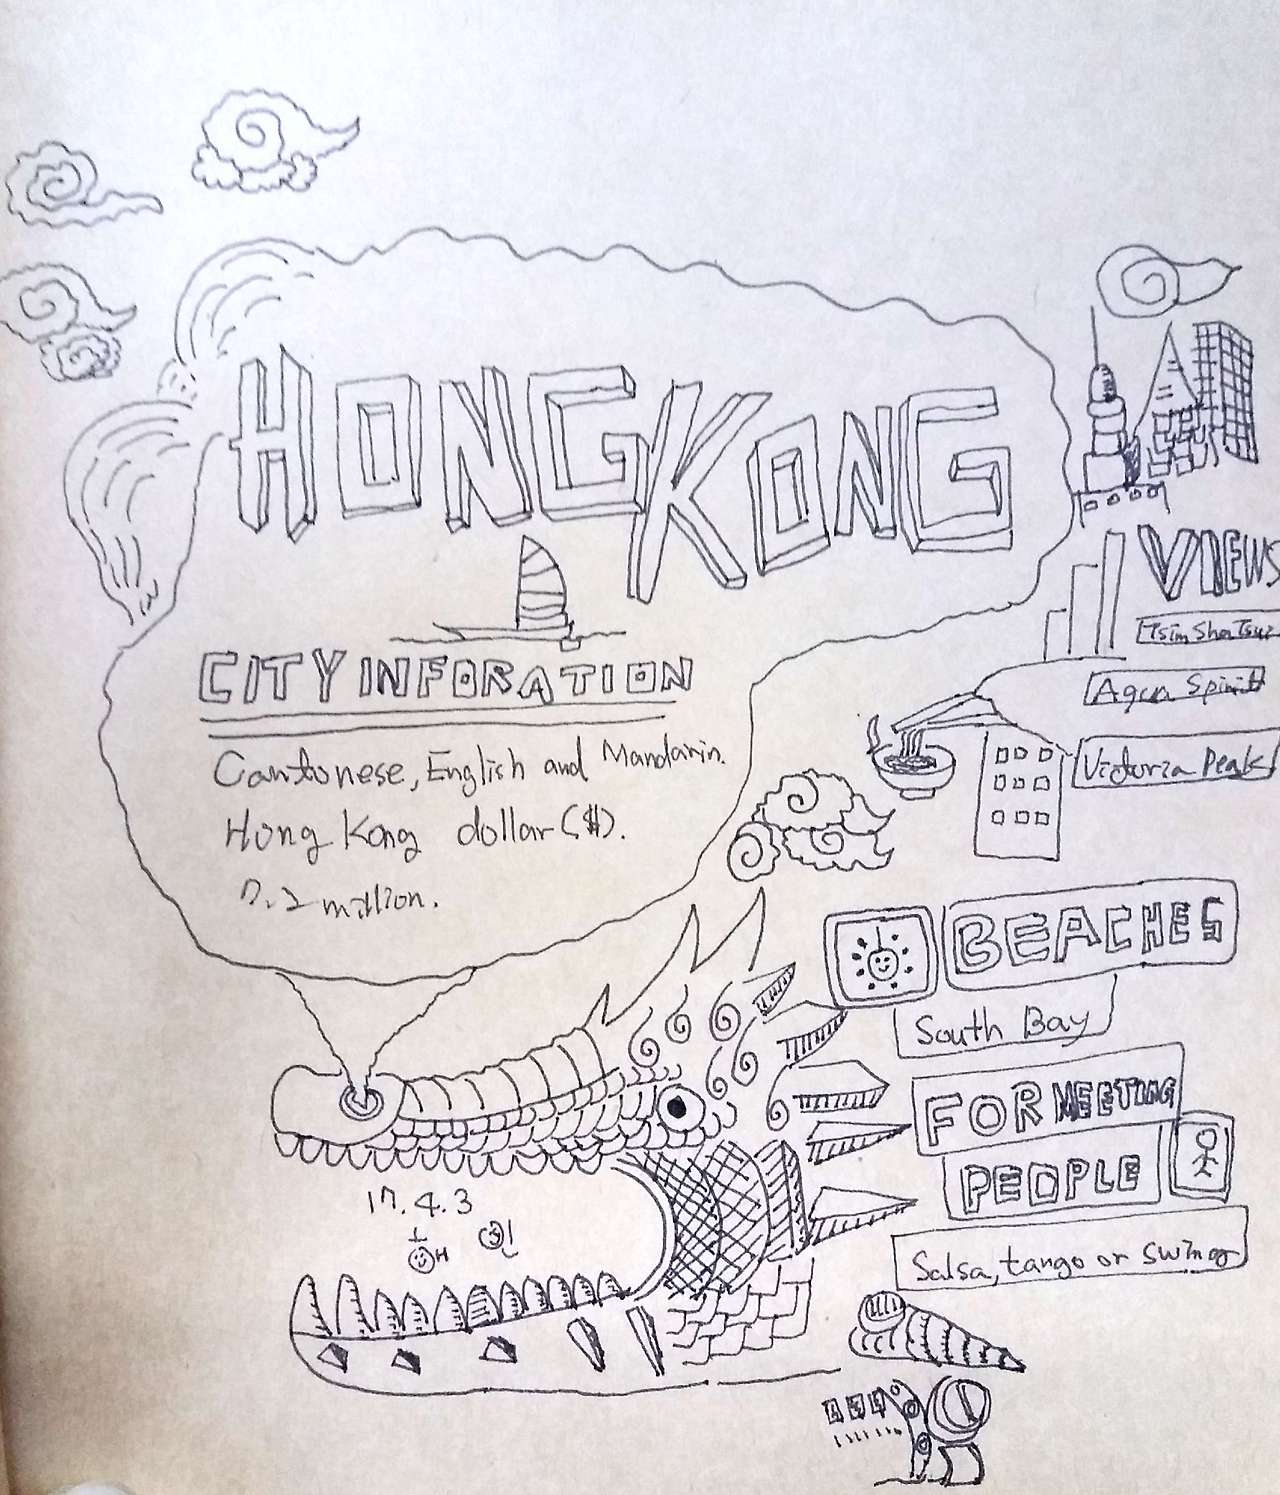 HONGKONG
CITY INFORATION
Cantonese, English and Mandarin.
Hong Kong dollar($).
7.2 million.
VIEWS
Tsim Sha Tsui
Aqua Spirit
Victoria Peak
BEACHES
South Bay
FOR MEETING
PEOPLE
Salsa, tango or swing
17.4.3